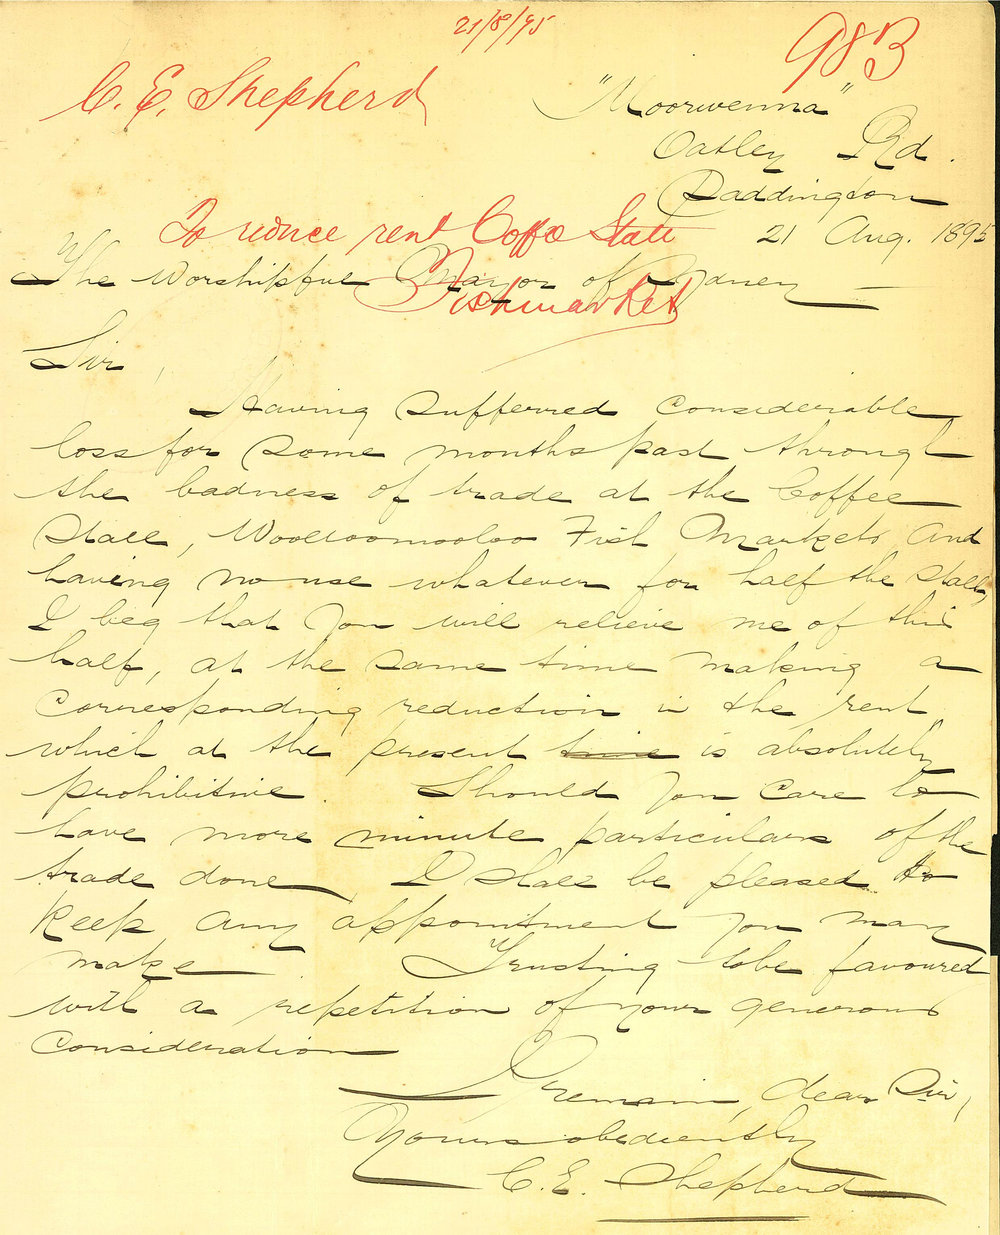 21/8/95
983
C. E. Shepherd
"Moorwenna"
Oatley Rd.
Paddington
To reduce rent Coffee Stall
21 Aug. 1895
The Worshipful Mayor of Sydney
Fishmarket
Sir,
Having sufferred considerable
loss for some months past through
the badness of trade at the Coffee
Stall, Woolloomooloo Fish Markets, and
having no use whatever for half the stall,
I beg that you will relieve me of this
half, at the same time making a
corresponding reduction in the rent,
which at the present time is absolutely
prohibitive Should you care to
have more minute particulars of the
trade done, I shall be pleased to
keep any appointment you may
make Trusting to be favoured
with a repetition of your generous
consideration
I remain, dear Sir,
Yours obediently
C. E. Shepherd